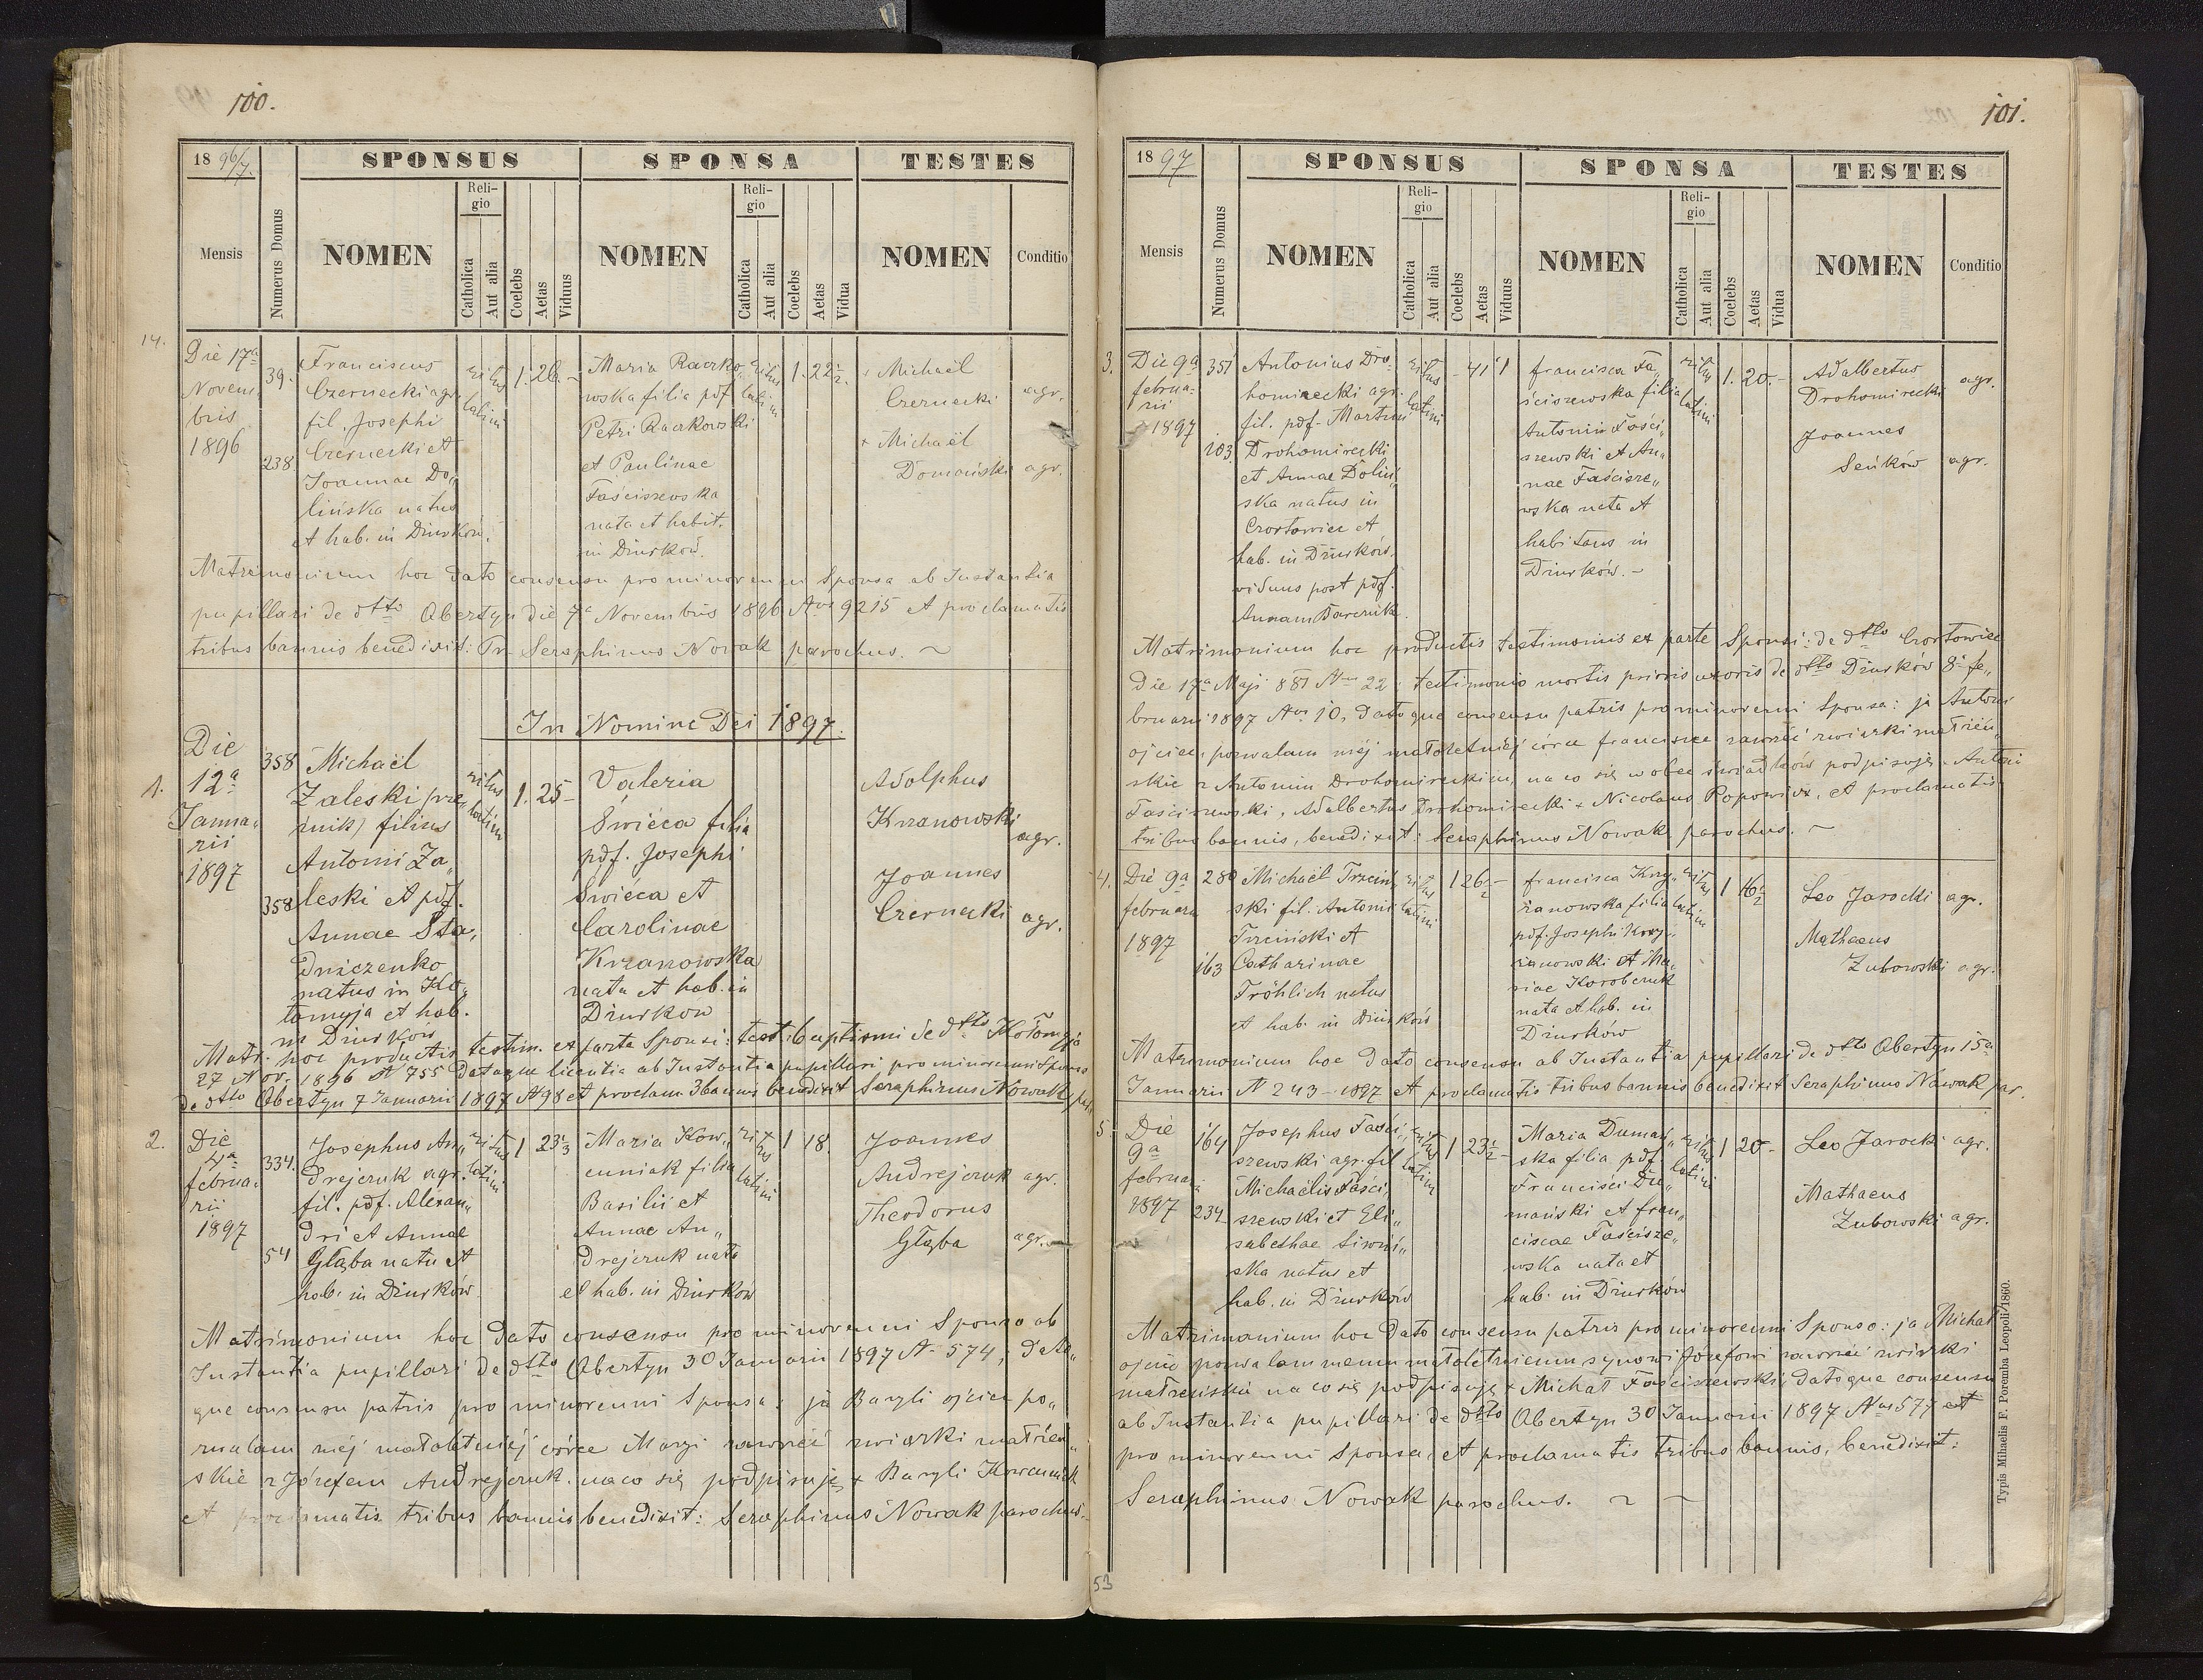 100.
18 96/7.
SPONSUS
SPONSA
TESTES
Mensis
Numerus Domus
NOMEN
Religio
Catholica
Aut alia
Coelebs
Aetas
Viduus
NOMEN
Religio
Catholica
Aut alia
Coelebs
Aetas
Vidua
NOMEN
Conditio
14.
Die 17a
Novem
bris
1896
39.
238
Franciscus
Czernecki agr.
fil. Josephi
Czernecki et
Joannae Do„
lińska natus
et hab. in Dżurków.
ritus
latini
1. 26 -
Maria Raczko„
wska filia pdf
Petri Raczkowski
et Paulinae
Faściszewska
nata et habit.
in Dżurków.
ritus
latini
1. 22 1/2.
Michaël
Czernecki agr.
+ Michaël
Domański agr.
Matrimonium hoc dato consensu pro minorenni Sponsa ab Instantia
pupillari de dtto Obertyn die 7a Novembris 1896 Nro 9215 et proclamatis
tribus bannis benedixit: Fr. Seraphinus Nowak parochus. ~
In Nomine Dei 1897.
1.
Die
12a
Janua„
rii
1897
358
358
Michaël
Zaleski
filius
Antonii Za„
leski et pdf.
Annae Sta„
dniczenko
natus in Ko„
łomyja et hab.
in Dżurków
ritus
latini
1. 25 -
Valeria
Święca filia
pdf. Josephi
Święca et
Carolinae
Krzanowska
nata et hab. in
Dżurkow
Adolphus
Krzanowski
agr.
Joannes
Czernecki agr.
Matr. hoc productis testim. ex parte Sponsi: test. baptismi de dtto Kołomyja
27 Nov. 1896 N 755 datoque licentia ab Instantia pupillari, pro minorenni Sponsa
de dtto Obertyn 7 Januarii 1897 N 98 et proclam 3 bannis benedixit Seraphinus Nowak par.
2.
Die
4a
februa„
rii
1897
334.
54
Josephus An„
drejczuk agr.
fil. pdf. Alexan„
dri et Annae
Głąba natus et
hab. in Dżurków.
ritus
latini
1 23 1/3
Maria Kow„
cuniak filia
Basilii et
Annae An„
drejczuk nata
et hab. in Dżurków
ritus
latini
1 18.
Joannes
Andrejczuk agr.
Theodorus
Głąba agr.
Matrimonium hoc dato consensu pro minorenni Sponso ab
Instantia pupillari de dtto Obertyn 30 Januarii 1897 N. 574; dato„
que consensu patris pro minorenni Sponsa: ja Bazyli ojciec po„
zwalam méj małoletniéj córce Maryi zawrzeć związki małżeń„
skie z Józefem Andrejczuk. na co się podpisuję + Bazyli Kowcuniak
et proclamatis tribus bannis benedixit: Seraphinus Nowak parochus.
101.
18 97
SPONSUS
SPONSA
TESTES
Mensis
Numerus Domus
NOMEN
Religio
Catholica
Aut alia
Coelebs
Aetas
Viduus
NOMEN
Religio
Catholica
Aut alia
Coelebs
Aetas
Vidua
NOMEN
Conditio
3.
Die 9a
februa„
rii
1897
351
103.
Antonius Dro„
homirecki agr.
fil. pdf. Martini
Drohomirecki
et Annae Doliń„
ska natus in
Czortowiec et
hab. in Dżurków.
viduus post pdf.
Annam
ritus
latini
- 41 1
francisca Fa„
ściszewska filia
Antonii Fości„
szewski et An„
nae Faścisze„
wska nata et
habitans in
Dżurków. -
ritus
latini
1. 20. -
Adalbertus
Drohomirecki agr.
Joannes
Seńków agr.
Matrimonium hoc productis testimoniis ex parte Sponsi: de dtto Czortowiec
Die 17a Maji 881 Nro 22; testimonio mortis prioris uxoris de dtto Dżurków 8a fe„
bruarii 1897 Nro 10, datoque consensu patris pro minorenni Sponsa: ja Antoni
ojciec pozwalam méj małoletniéj córce francisce zawrzeć związki małżeń„
skie z Antonim Drohomireckim, na co się wobec świadków podpisuję. Antoni
Faściszewski, Adalbertus Drohomirecki + Nicolaus Popowicz, et proclamatis
tribus bannis, benedixit: Seraphinus Nowak, parochus. ~
4.
Die 9a
februarii
1897
280
163
Michaël Trzciń„
ski fil. Antonii
Trzciński et
Catharinae
Fröhlich natus
et hab. in Dżurków
ritus
latini
1 26 1/2 -
francisca Krzy„
żanowska filia
pdf. Josephi Krzy„
żanowski et Ma„
riae Korobczuk
nata et hab. in
Dżurków
ritus
latini
1 16 1/2
Leo Jarocki agr.
Mathaeus
Zubowski agr.
Matrimonium hoc dato consensu ab Instantia pupillari de dtto Obertyn 15a
Januarii N 243 - 1897 et proclamatis tribus bannis benedixit Seraphinus Nowak par.
5
Die
9a
februarii
1897
164
234
Josephus Faści„
szewski agr. fil
Michaëlis Faści„
szewski et Eli„
sabethae Siwiń„
ska natus et
hab. in Dżurków
ritus
latini
1 23 1/2 -
Maria Dumań„
ska filia pdf
Francisci Du„
mański et fran„
ciscae Faścisze„
wska nata et
hab. in Dżurków
ritus
latini
1 20 -
Leo Jarocki agr.
Mathaeus
Zubowski agr.
Matrimonium hoc dato consensu patris pro minorenni Sponso: ja Michał
ojciec pozwalam memu małoletniemu synowi Józefowi zawrzeć związki
małżeńskie na co się podpisuję + Michał Faściszewski, datoque consensu
ab Instantia pupillari de dtto Obertyn 30 Januarii 1897 Nro 577 et
pro minorenni Sponsa, et proclamatis tribus bannis, benedixit:
Seraphinus Nowak parochus. ~ ~
Typis Mihaelis F. Poremba Leopoli 1860.
53